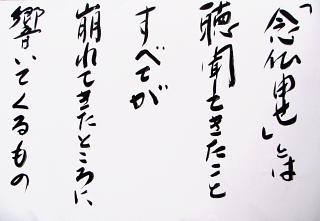 「念仏申せ」とは
聴聞してきたこと
すべてが
崩れてきたところに
響いてくるもの